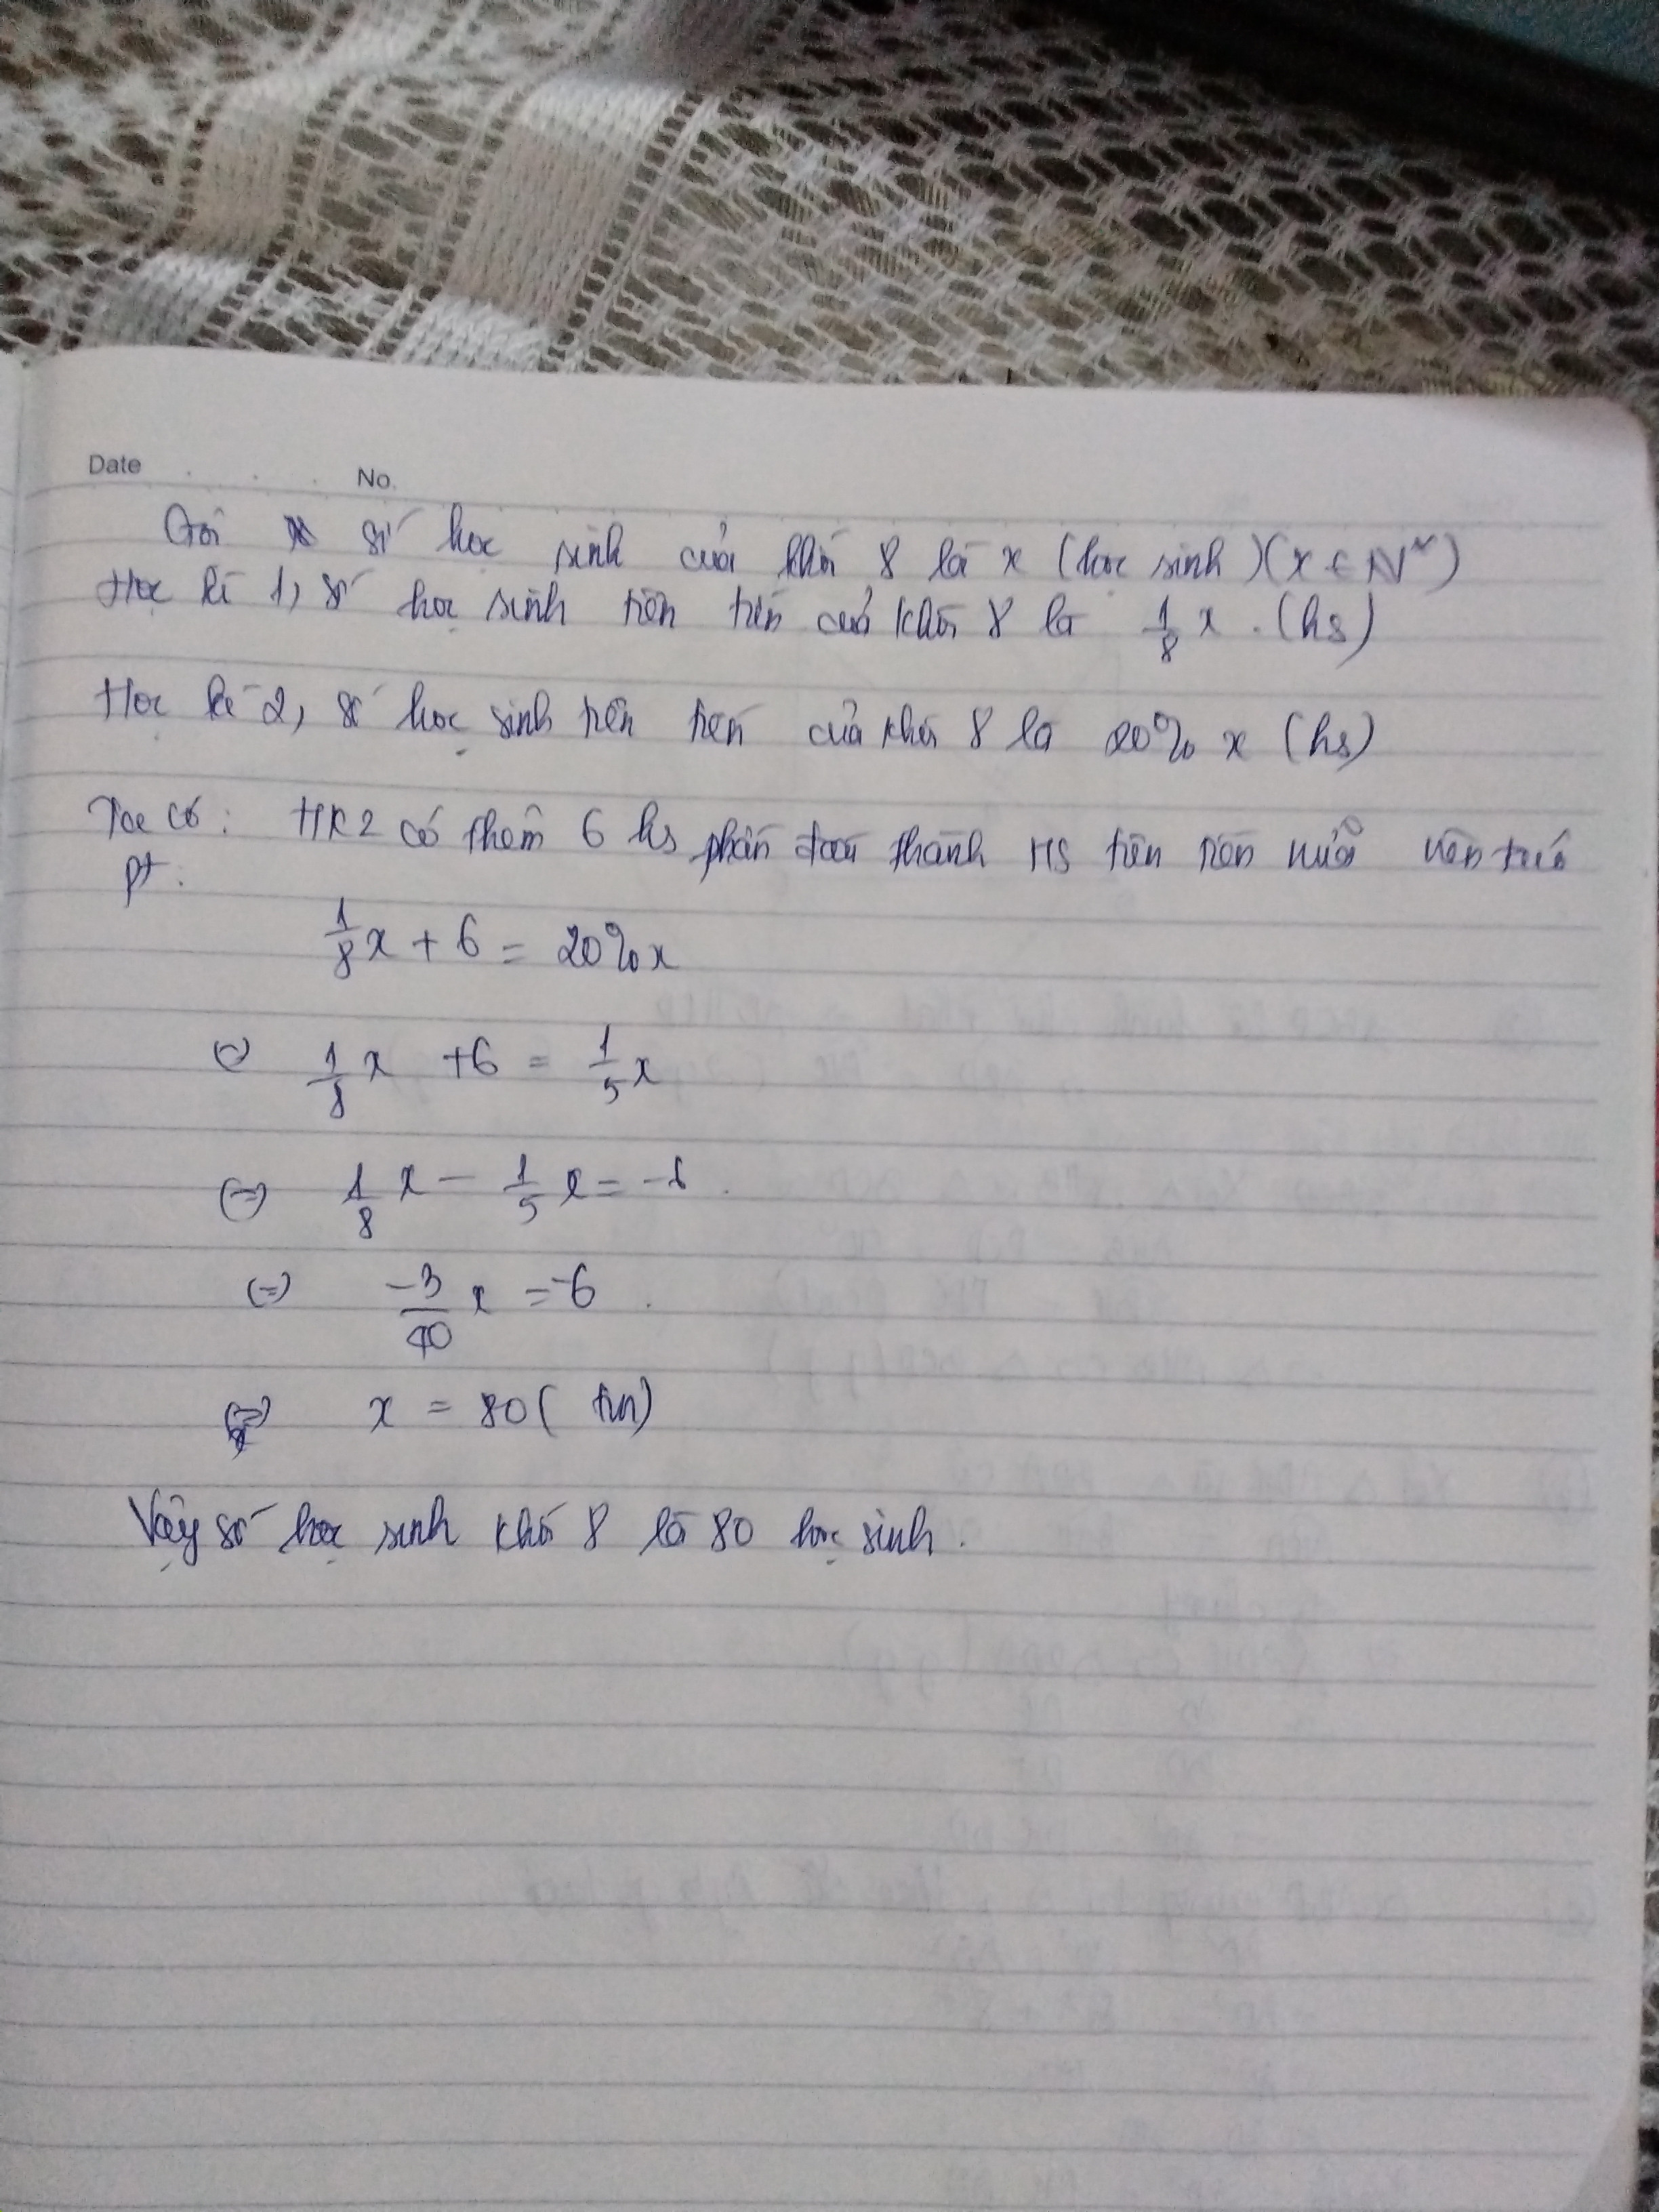 Date No.
Gọi số học sinh của khối 8 là x (học sinh)(x ∈ N*)
Học kì 1, số học sinh tiên tiến của khối 8 là 1/8 x. (hs)
Học kì 2, số học sinh tiên tiến của khối 8 là 20% x (hs)
Ta có: HK2 có thêm 6 hs phấn đấu thành HS tiên tiến nữa nên ta có
pt:
1/8 x + 6 = 20% x
(=) 1/8 x + 6 = 1/5 x
(=) 1/8 x - 1/5 x = -6.
(=) -3/40 x = -6.
(=) x = 80 (tm)
Vậy số học sinh khối 8 là 80 học sinh.